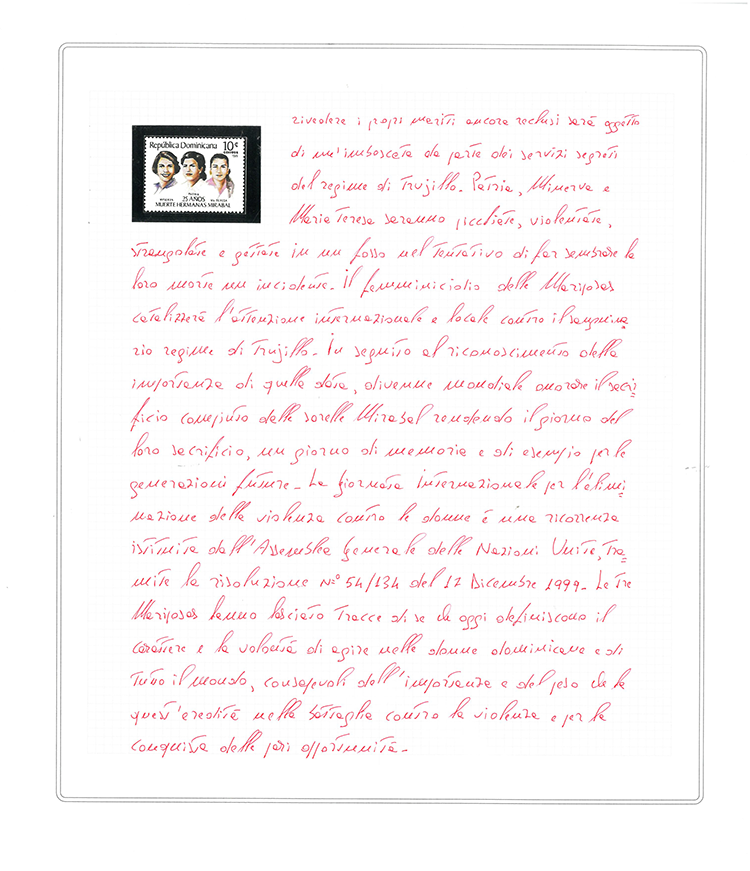 República Dominicana
10¢
CORREOS
MINERVA
PATRIA
MA. TERESA
25 AÑOS
MUERTE HERMANAS MIRABAL
rivedere i propri mariti ancora reclusi sarà oggetto
di un'imboscata da parte dei servizi segreti
del regime di Trujillo. Patria, Minerva e
Maria Teresa saranno picchiate, violentate,
strangolate e gettate in un fosso nel tentativo di far sembrare la
loro morte un incidente. Il femminicidio delle Mariposas
catalizzerà l'attenzione internazionale e locale contro il sanguina
rio regime di Trujillo. In seguito al riconoscimento della
importanza di quella data, divenne mondiale onorare il sacri-
ficio compiuto dalle sorelle Mirabal rendendo il giorno del
loro sacrificio, un giorno di memoria e di esempio per le
generazioni future. La Giornata Internazionale per l'elimi-
nazione della violenza contro le donne è una ricorrenza
istituita dall'Assemblea Generale delle Nazioni Unite, tra-
mite la risoluzione N.° 54/134 del 17 Dicembre 1999. Le tre
Mariposas hanno lasciato tracce di se che oggi definiscono il
carattere e la volontà di agire nelle donne dominicane e di
tutto il mondo, consapevoli dell'importanza e del peso che ha
quest'eredità nella battaglia contro la violenza e per la
conquista delle pari opportunità.